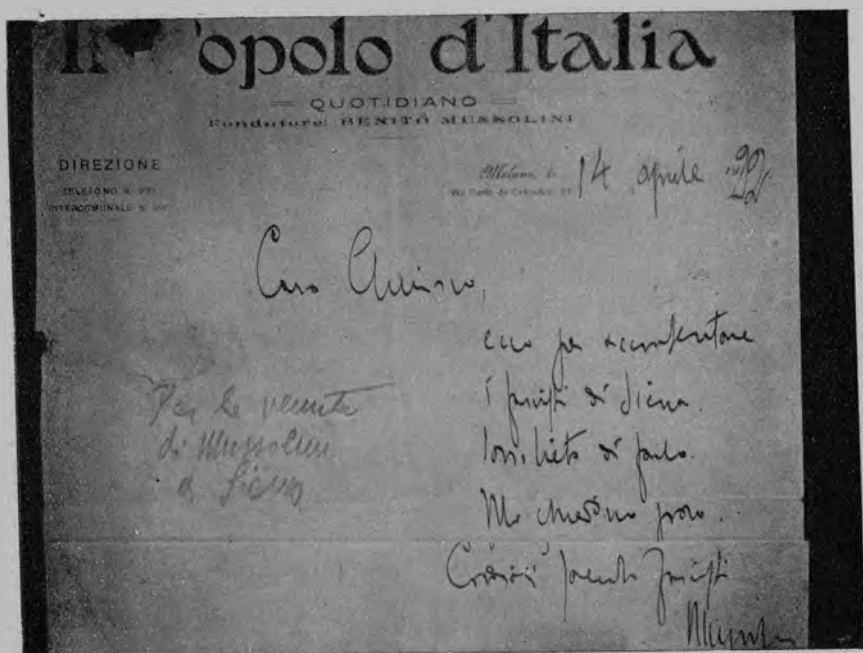 Il Popolo d'Italia
QUOTIDIANO
Fondatore: BENITO MUSSOLINI
DIREZIONE
TELEFONO N.
INTERCOMUNALE N.
Milano, li 14 aprile
Caro
ecco per accontentare
i fascisti di Siena.
Son lieto di farlo.
Me chiedono poco.
Cordiali saluti fascisti
Mussolini
Per la venuta
di Mussolini
a Siena